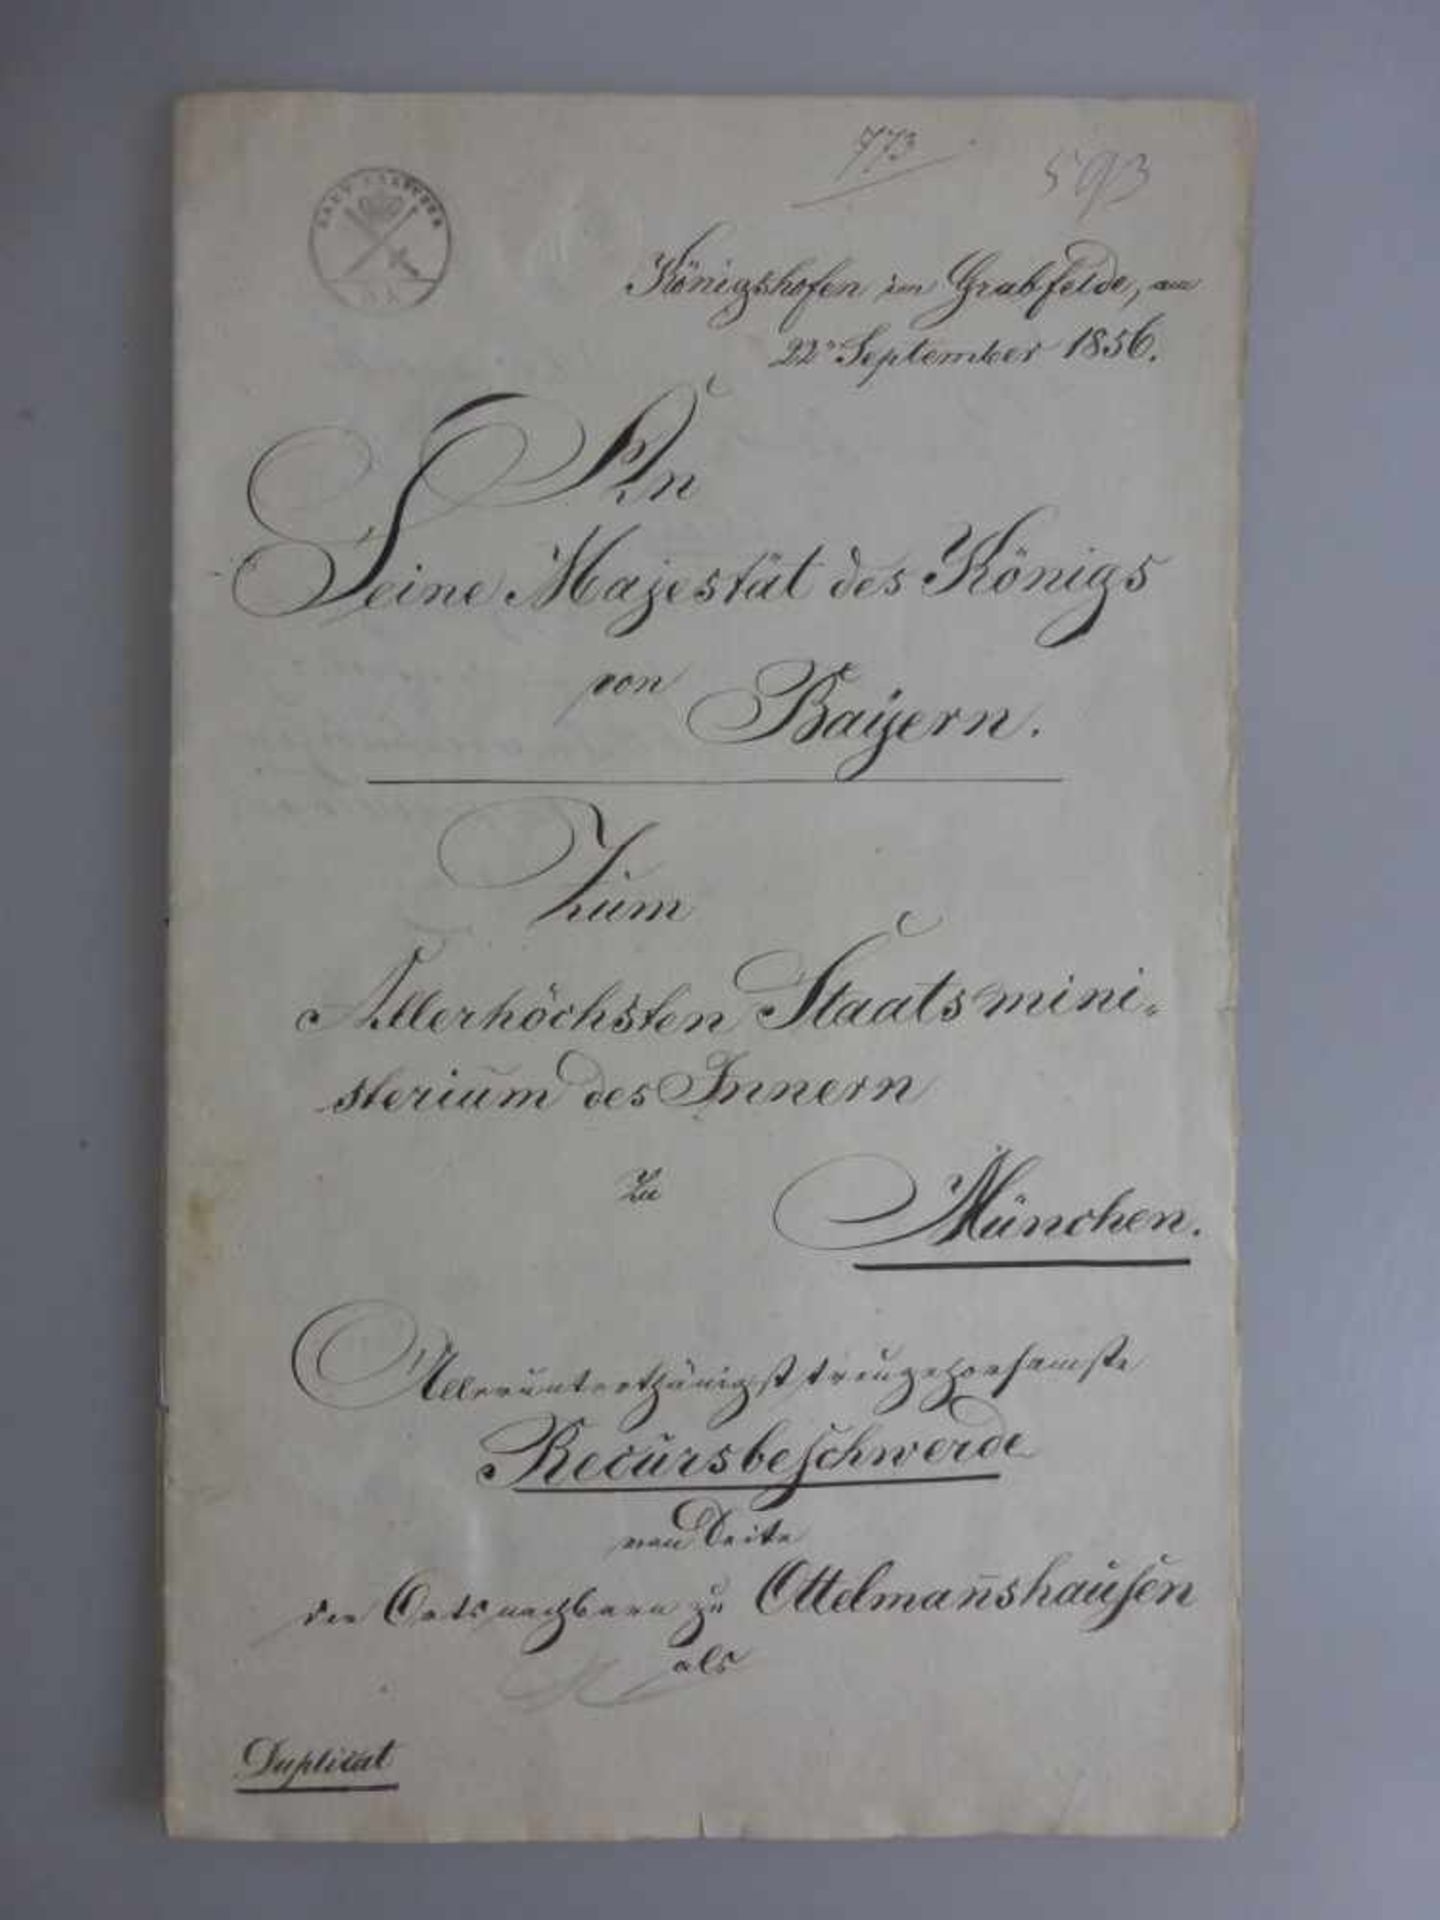 773
593
Königshofen im Grabfelde, am
22. September 1856.
An
Seine Majestät des Königs
von Bayern.
Zum
Allerhöchsten Staatsmini-
sterium des Innern
zu München.
Allerunterthänigst treugehorsamste
Recursbeschwerde
von Seite
der Ortsnachbarn zu Ottelmannshausen
als
Duplicat